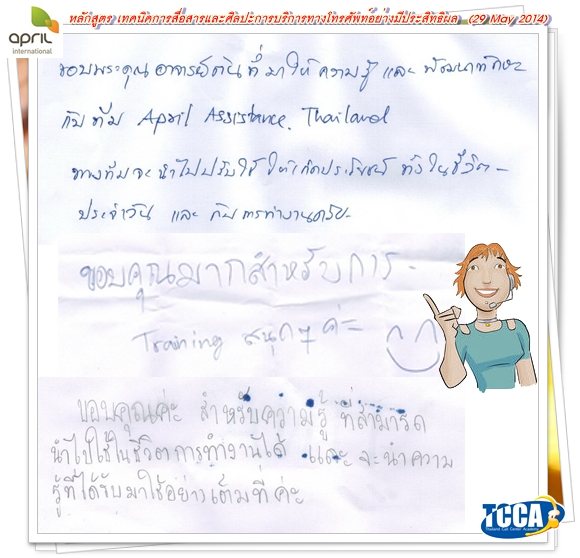 หลักสูตร เทคนิคการสื่อสารและศิลปะการบริการทางโทรศัพท์อย่างมีประสิทธิผล (29 May 2014)
april
international
ขอบพระคุณ อาจารย์ ที่มาให้ความรู้ และ พัฒนาทักษะ
กับทีม April Assistance, Thailand
ทางทีมจะนำไปปรับใช้ ให้เกิดประโยชน์ ทั้งในชีวิต-
ประจำวัน และ กับการทำงานครับ
ขอบคุณมากสำหรับการ-
Training สนุกๆ ค่ะ
ขอบคุณค่ะ สำหรับความรู้ ที่สามารถ
นำไปใช้ในชีวิตการทำงานได้ และ จะนำความ
รู้ที่ได้รับมาใช้อย่างเต็มที่ค่ะ
TCCA
Thailand Call Center Academy